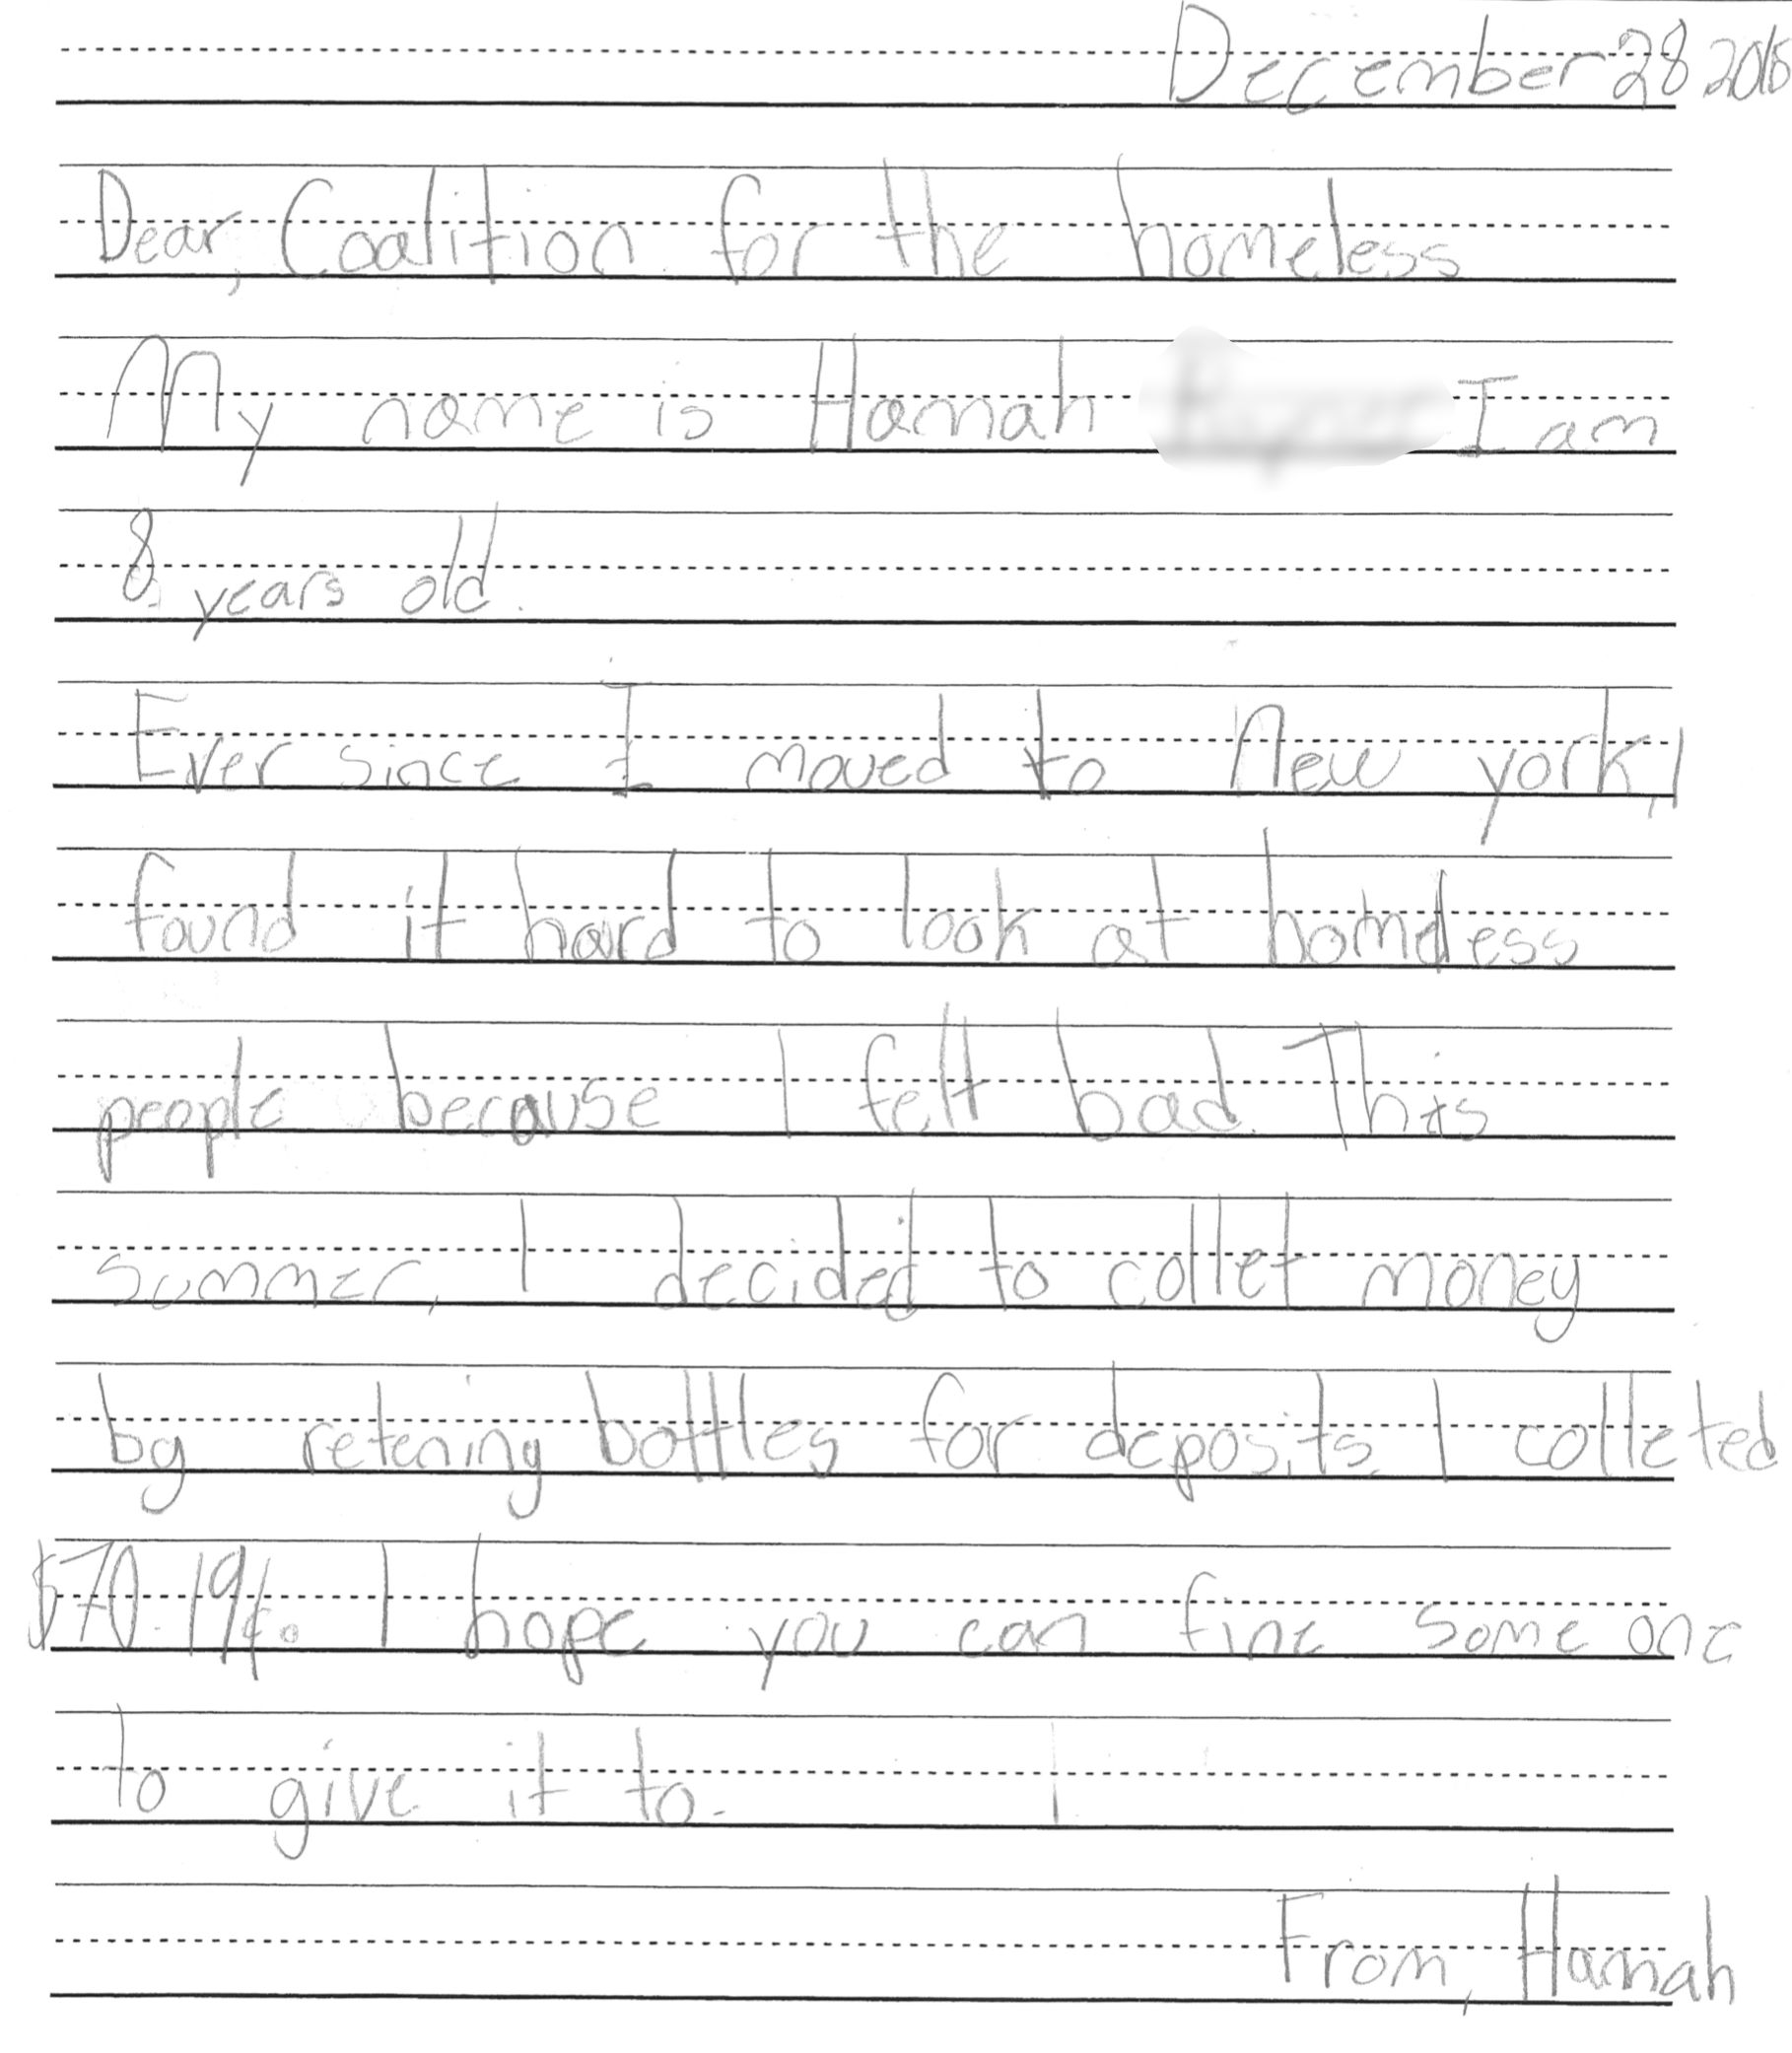 December 28 2015
Dear, Coalition for the homeless
My name is Hannah I am
8 years old.
Ever since I moved to New york, I
found it hard to look at homeless
people because I felt bad. This
summer, I decided to collet money
by retening bottles for deposits. I colleted
$70.19¢. I hope you can fine some one
to give it to.
From, Hannah